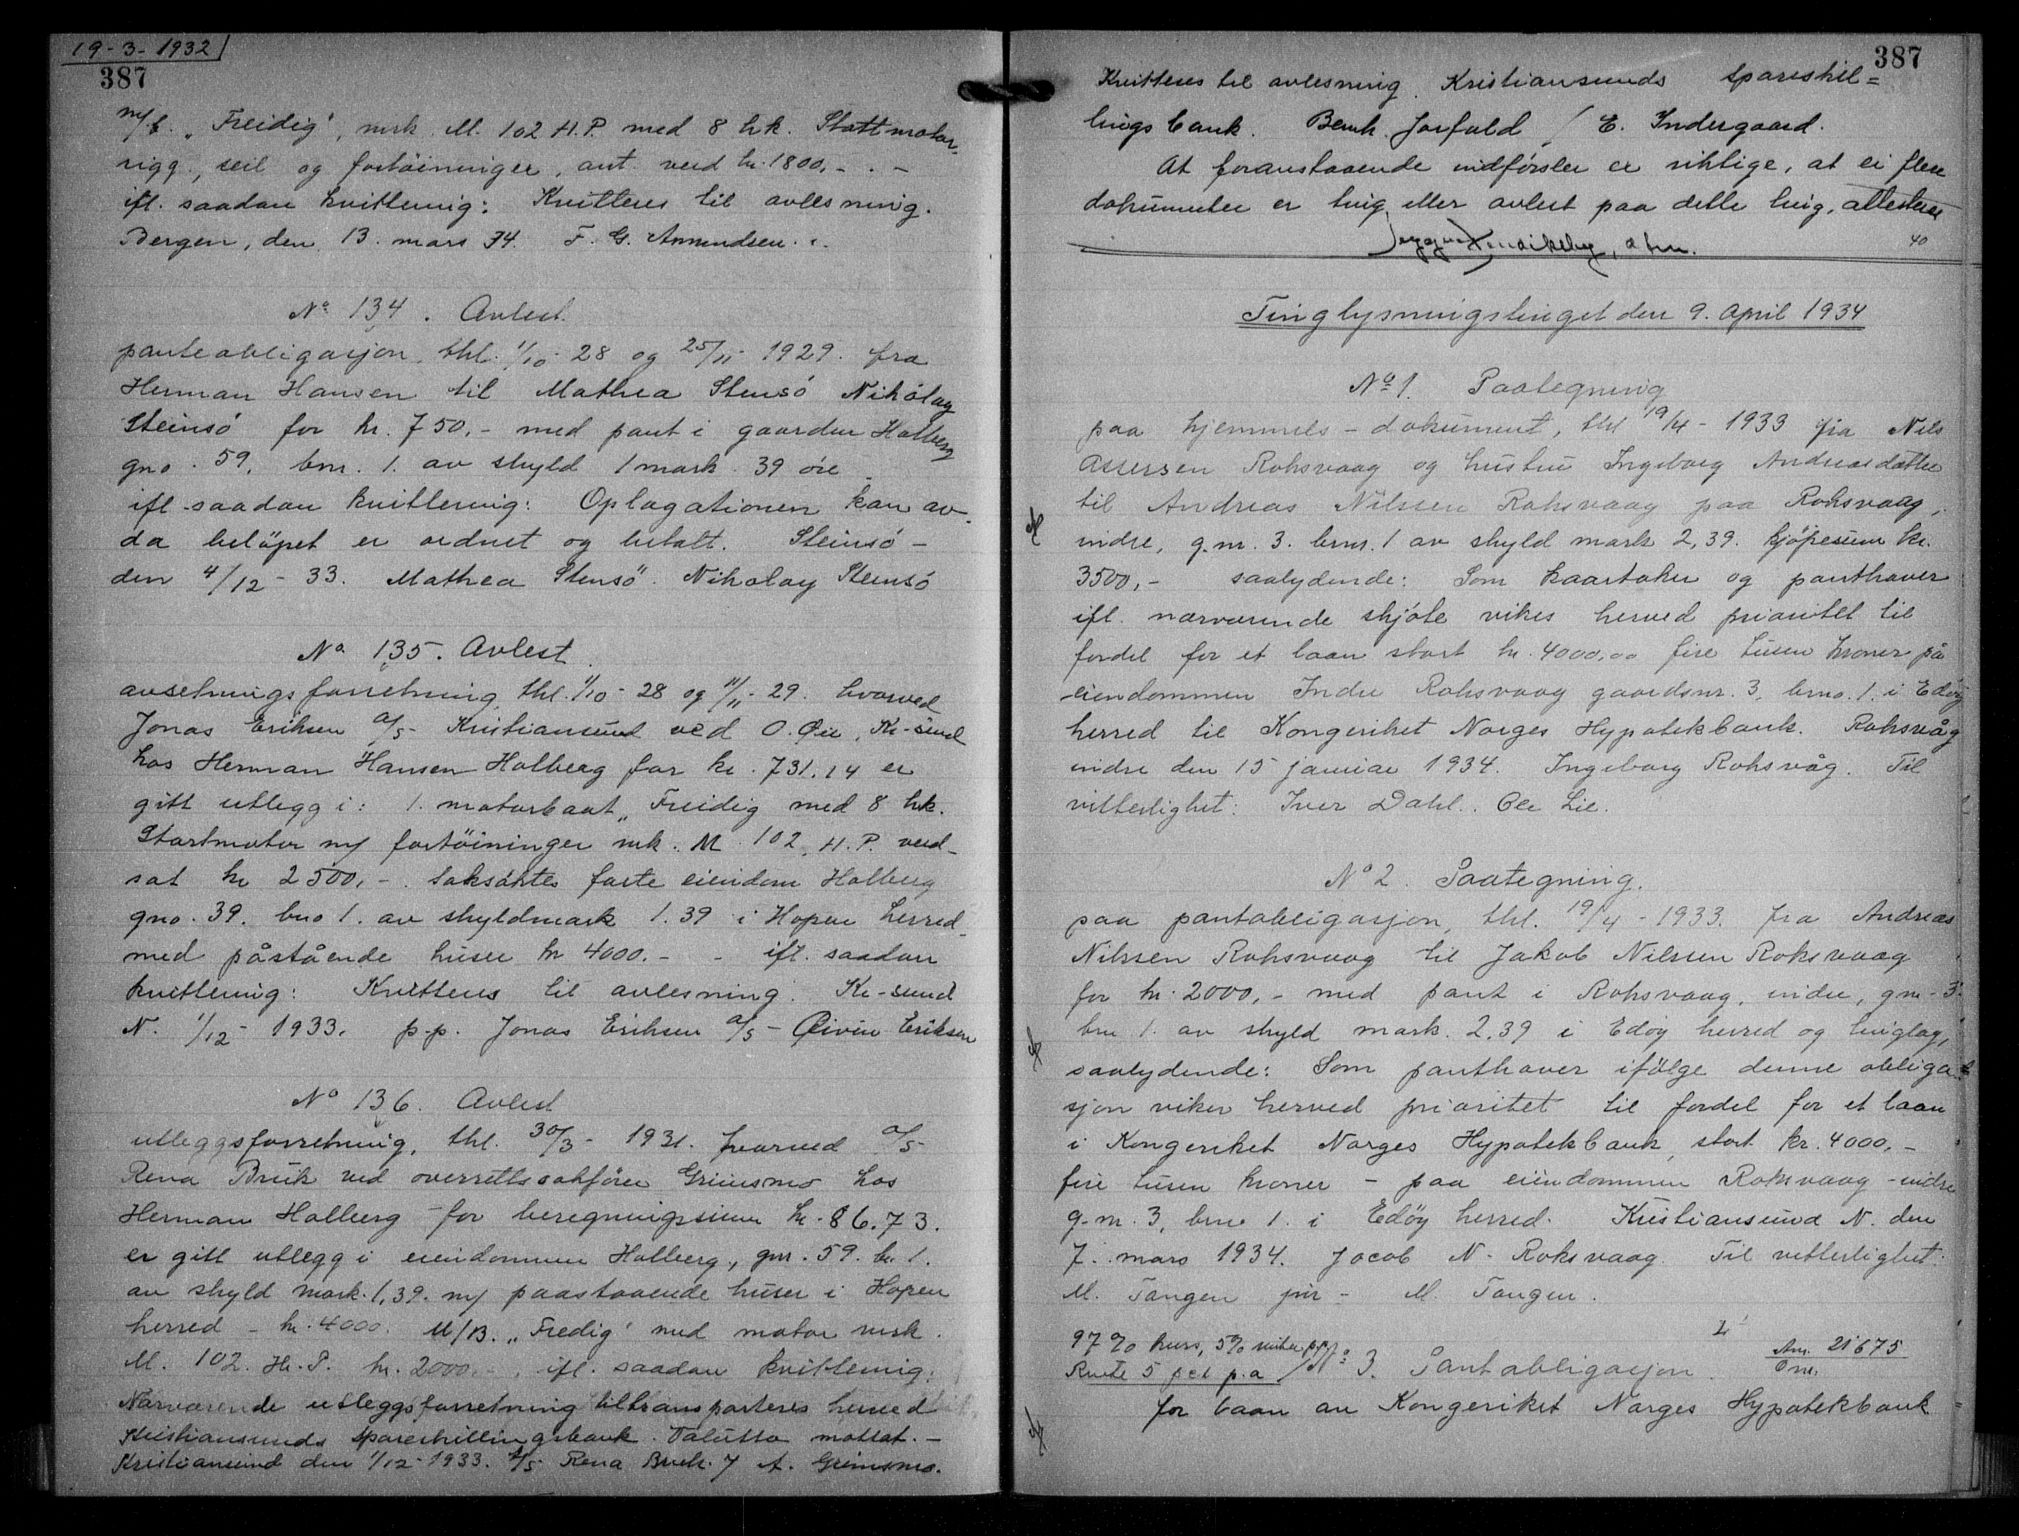 19-3-1932
387
m/b. „Freidig", mrk. M. 102 H.P. med 8 hk. Stattmotor-
rigg, seil og fortöininger, ant. verd kr. 1800,- . -
ifl. saadan kvittering: Kvitteres til avlesning.
Bergen, den 13. mars 34. F. G. Amundsen.
No 134. Avlest.
panteobligasjon, thl. 1/10-28 og 25/11-1929. fra
Herman Hansen til Mathea Stensö Nikolay
Steinsö for kr. 750,- med pant i gaarden Halberg
gno. 59, bnr. 1. av skyld 1 mark 39 öre
ifl. saadan kvittering: Oplagationen kan av-
da belöpet er ordnet og betalt. Steinsö -
den 4/12-33. Mathea Stensö. Nikolay Steinsö
No 135. Avlest.
avsetningsforretning, thl. 1/10-28 og 11/11-29. hvorved
Jonas Eriksen A/S- Kristiansund ved O. Øie, Kr-sund
hos Herman Hansen Halberg for kr. 731.14 er
gitt utlegg i: 1. motorbaat „Freidig med 8 hk.
Startmotor m/ fortöininger mrk. M. 102, H.P. verd-
sat kr 2500,-. saksöktes faste eiendom Halberg
gno. 39. bno 1. av skyldmark 1.39 i Hopen herred
med påstående huser kr 4000.- - ifl. saadan
kvittering: Kvitteres til avlesning. Kr-sund
N. 1/12-1933. p.p. Jonas Eriksen A/S- Øivin Eriksen
No 136. Avlest
utleggsforretning, thl. 30/3-1931. hvorved A/S
Rena Bruk ved overrettssakförer Grimsmo hos
Herman Halberg for beregningssum kr. 86.73.
er gitt utlegg i eiendommen Halberg, gnr. 59. br. 1.
av skyld mark. 1,39. m/ paastaaende huser i Hopen
herred - kr. 4000. M/B. „Fredig" med motor mrk.
M. 102. H.P. kr. 2000.- ifl. saadan kvittering:
Nærværende utleggsforretning tiltransporteres herved
Kristiansunds Spareskillingsbank. Valutta mottat. -
Kristiansund den 1/12-1933. A/S Rena Bruk. / A. Grimsmo.
387
Kvitteres til avlesning. Kristiansunds Spareskil=
lingsbank. Bernh. Jorfald / E. Indergaard.
At foranstaaende indförsler er riktige, at ei flere
dokumenter er ting. eller avlest paa dette ting, attesteres
40
Tinglysningstinget den 9. april 1934
No 1. Paategning
paa hjemmels-dokument, thl 19/4-1933 fra Nils
Assersen Roksvaag og hustru Ingeborg Andreasdatter
til Andreas Nilssen Roksvaag paa Roksvaag,
indre, g.nr. 3. brnr. 1 av skyld mark 2,39. kjöpesum kr.
3500,- saalydende: Som kaartaker og panthaver
ifl. nærværende skjöte vikes herved prioritet til
fordel for et laan stort kr. 4000,00 fire tusen kroner på
eiendommen Indre Roksvaag gaardsnr. 3. brno. 1. i Edöy
herred til Kongeriket Norges Hypotekbank. Roksvåg
indre den 15 januar 1934. Ingeborg Roksvåg. Til
vitterlighet: Iver Dahl. Ole Lie.
No 2. Paategning.
paa pantobligasjon, thl. 19/4-1933. fra Andreas
Nilssen Roksvaag til Jakob Nilssen Roksvaag
for kr. 2000,- med pant i Roksvaag, indre, gnr. 3.
bnr 1. av skyld mark. 2,39 i Edöy herred og tinglag,
saalydende: Som panthaver ifölge denne obliga-
sjon viker herved prioritet til fordel for et laan
i Kongeriket Norges Hypotekbank, stort kr. 4000,-
fire tusen kroner - paa eiendommen Roksvaag - indre
g.nr. 3, brnr 1. i Edöy herred. Kristiansund N. den
7. mars 1934. Jacob N. Roksvaag. Til vitterlighet:
M. Tangen jnr - M. Tangen.
97 % kurs, 5%
Rente 5 pct p.a. No 3. Pantobligasjon. Anr. 21675
for laan av Kongeriket Norges Hypotekbank